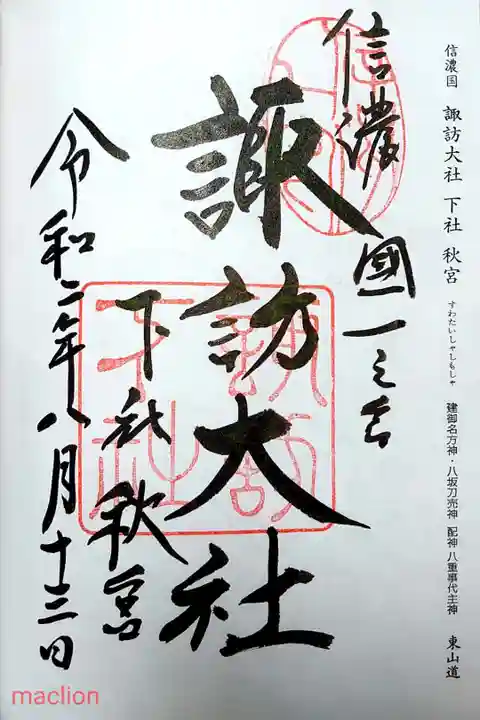 信濃国 諏訪大社 下社 秋宮 すわたいしゃしもしゃ 建御名方神・八坂刀売神 配神 八重事代主神 東山道
信濃國一之宮
諏訪大社
下社秋宮
令和二年八月十三日
諏訪
下社
maclion